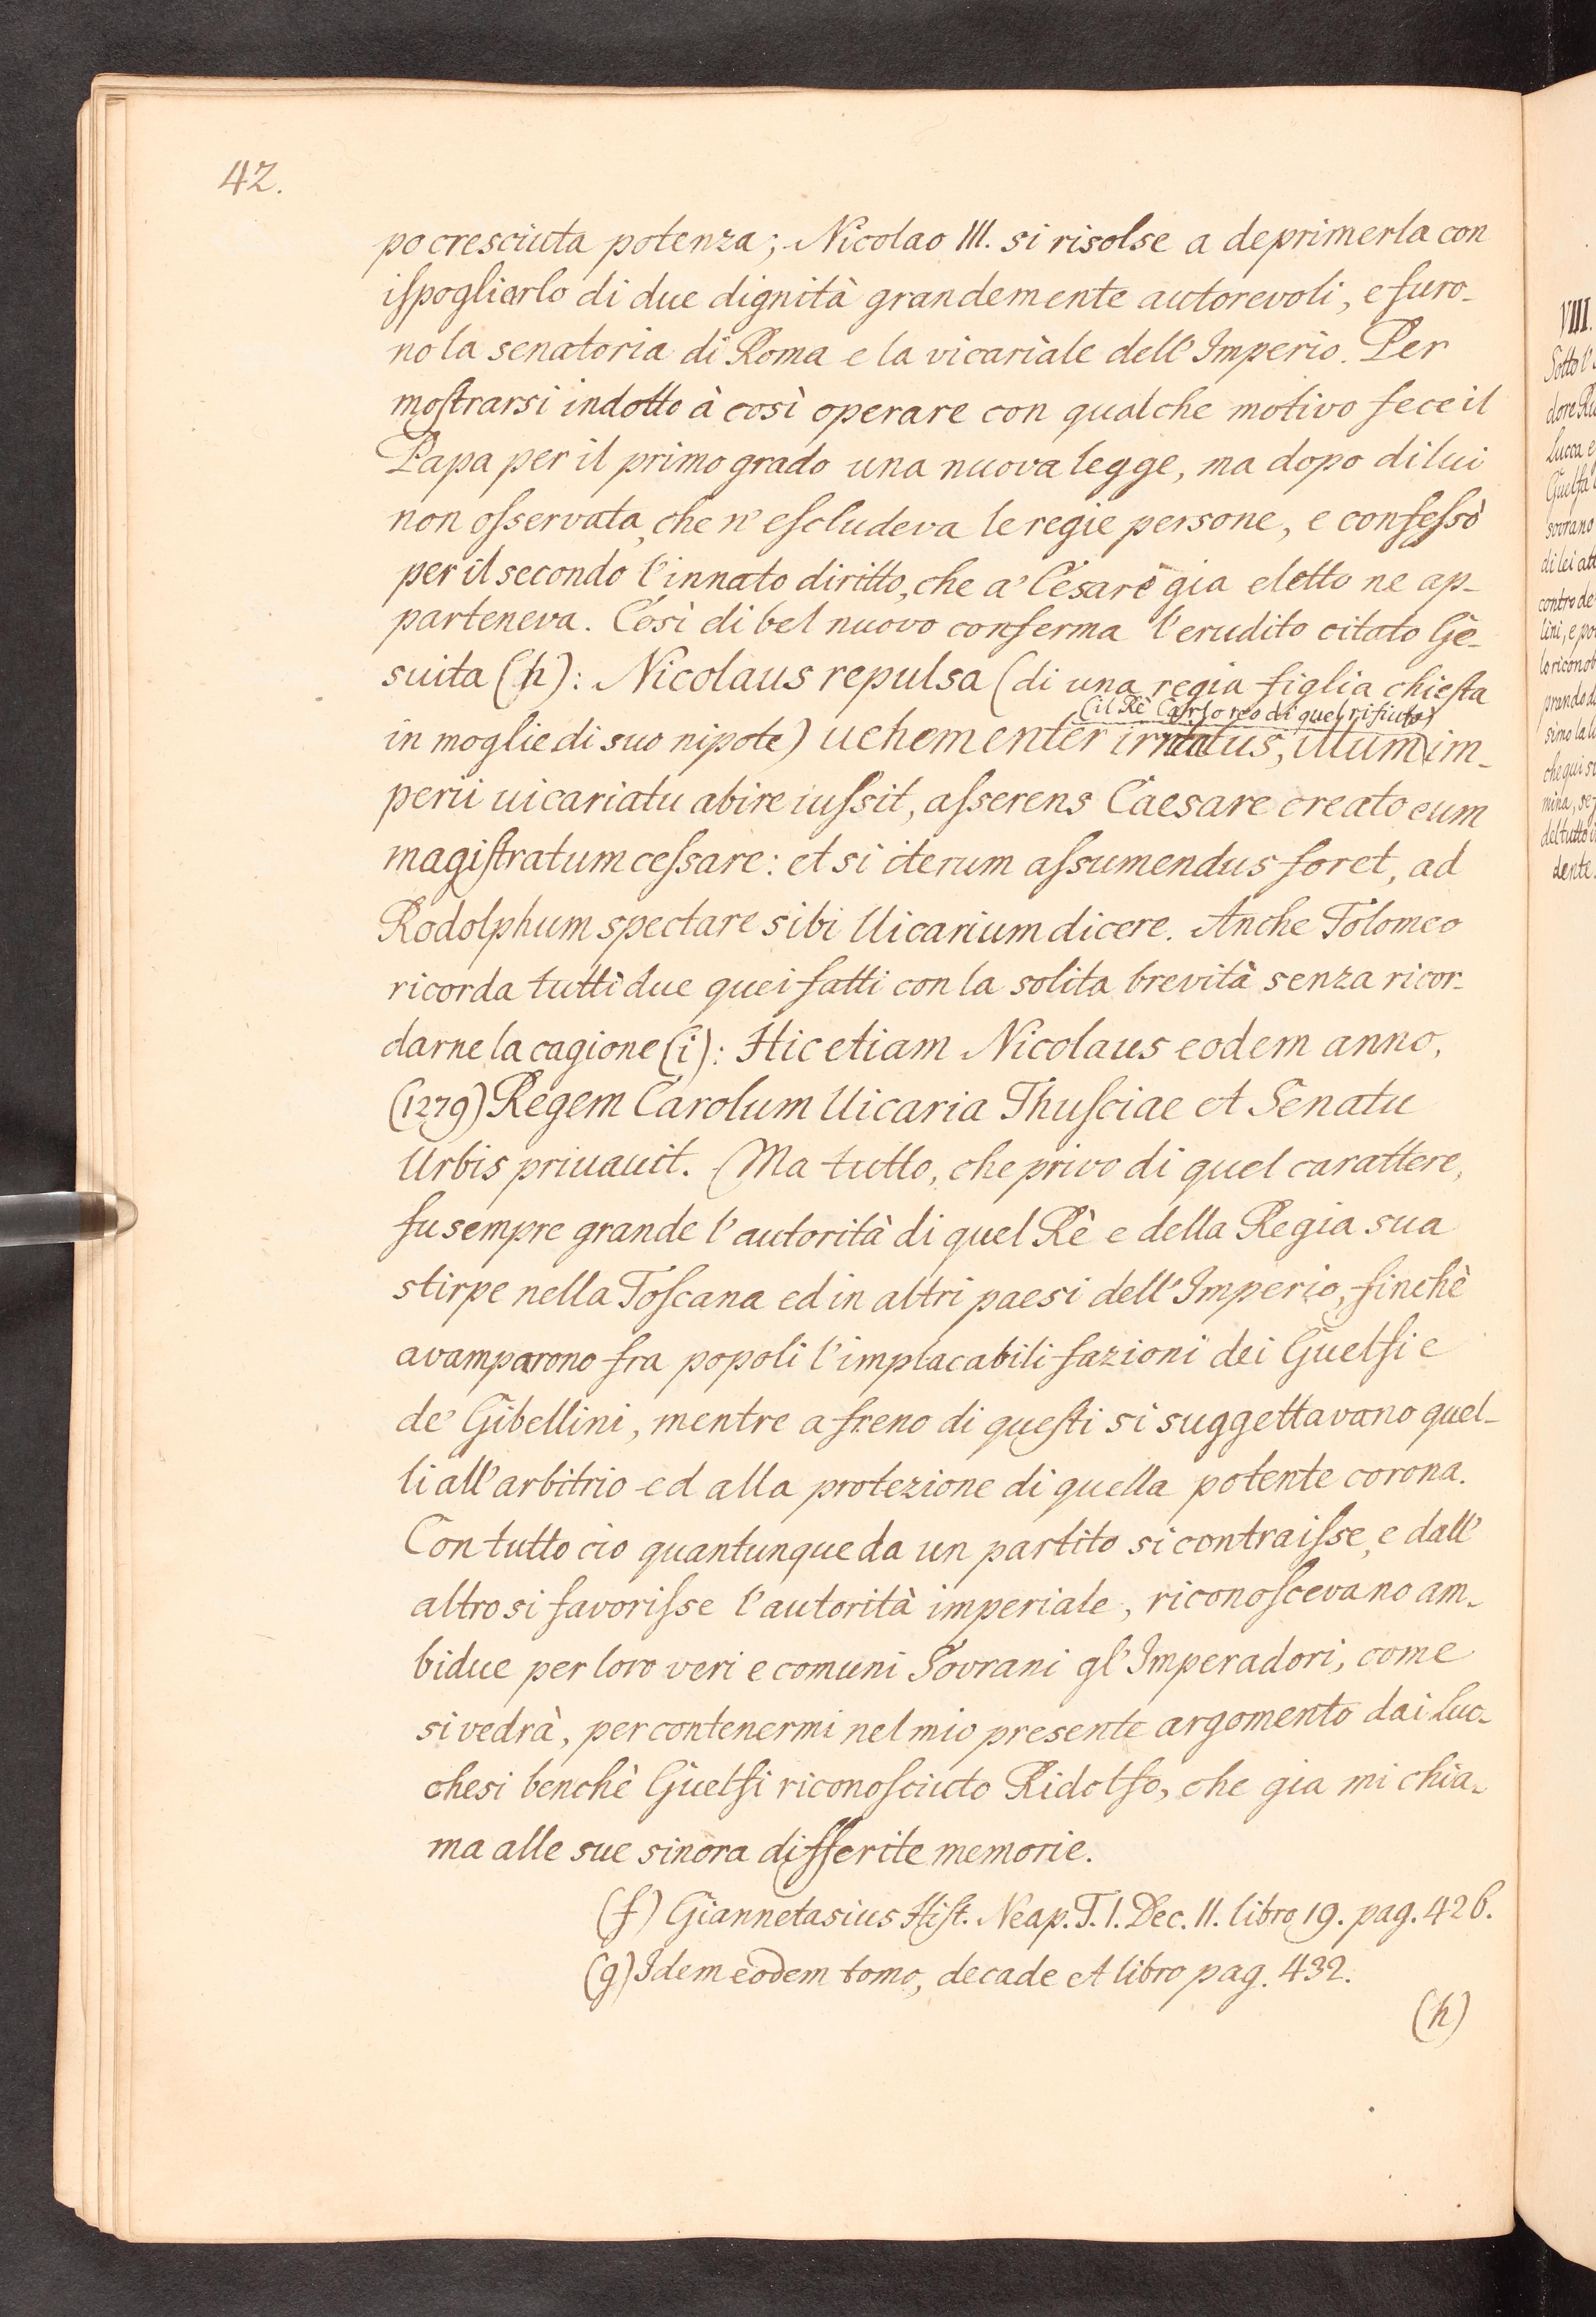 42.
po cresciuta potenza; Nicolao III. si risolse a deprimerla con
ispogliarlo di due dignità grandemente autorevoli, e furo-
no la senatoria di Roma e la vicariale dell'Imperio. Per
mostrarsi indotto à così operare con qualche motivo fece il
Papa per il primo grado una nuova legge, ma dopo di lui
non osservata, che n'escludeva le regie persone, e confessò
per il secondo l'innato diritto, che a' Cesare gia eletto ne ap-
parteneva. Così di bel nuovo conferma l'erudito citato Ge-
suita (h): Nicolaus repulsa (di una regia figlia chiesta
(il Rè Carlo reo di quel rifiuto)
in moglie di suo nipote) uehementer irritatus, illum im-
perii uicariatu abire iussit, asserens Caesare creato eum
magistratum cessare: et si iterum assumendus foret, ad
Rodolphum spectare sibi Uicarium dicere. Anche Tolomeo
ricorda tutti due quei fatti con la solita brevità senza ricor-
darne la cagione (i): Hic etiam Nicolaus eodem anno,
(1279) Regem Carolum Uicaria Thusciae et Senatu
Urbis priuauit. Ma tutto, che privo di quel carattere,
fu sempre grande l'autorità di quel Rè e della Regia sua
stirpe nella Toscana ed in altri paesi dell'Imperio, finchè
avamparono fra popoli l'implacabili fazioni dei Guelfi e
de' Gibellini, mentre a freno di questi si suggettavano quel-
li all'arbitrio ed alla protezione di quella potente corona.
Con tutto cio quantunque da un partito si contraisse, e dall'
altro si favorisse l'autorità imperiale, riconoscevano am-
bidue per loro veri e comuni Sovrani gl'Imperadori, come
si vedrà, per contenermi nel mio presente argomento dai Luc-
chesi benchè Guelfi riconosciuto Ridolfo, che gia mi chia-
ma alle sue sinora differite memorie.
(f) Giannetasius Hist. Neap. T. I. Dec. II. libro 19. pag. 426.
(g) Idem eodem tomo, decade et libro pag. 432.
(h)
VIII.
Sotto l'
Lucca e
Guelfa
sovrano
di lei
contro de
lini, e po
che qui si
mina, se
del tutto
dente.